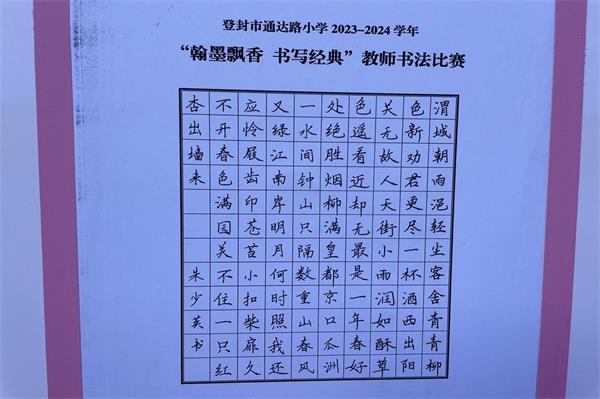 登封市通达路小学 2023-2024 学年
“翰墨飘香 书写经典”教师书法比赛
渭城朝雨浥轻尘客舍青青柳
色新劝君更尽一杯酒西出阳
关无故人天街小雨润如酥草
色遥看近却无最是一年春好
处绝胜烟柳满皇都京口瓜洲
一水间钟山只隔数重山春风
又绿江南岸明月何时照我还
应怜屐齿印苍苔小扣柴扉久
不开春色满园关不住一只红
杏出墙来 朱少英书